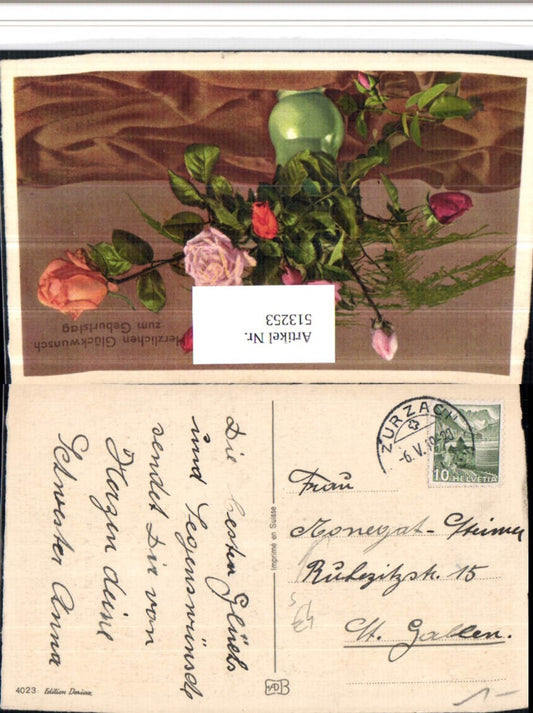 Herzlichen Glückwunsch
zum Geburtstag
Artikel Nr.
513253
Die besten Glücks
und Segenswünsche
sendet Dir von
Herzen deine
Schwester Anna
Imprimé en Suisse
4023 Edition Dorias
ZURZACH
-6.V.
10 HELVETIA
Frau
15
St. Gallen.